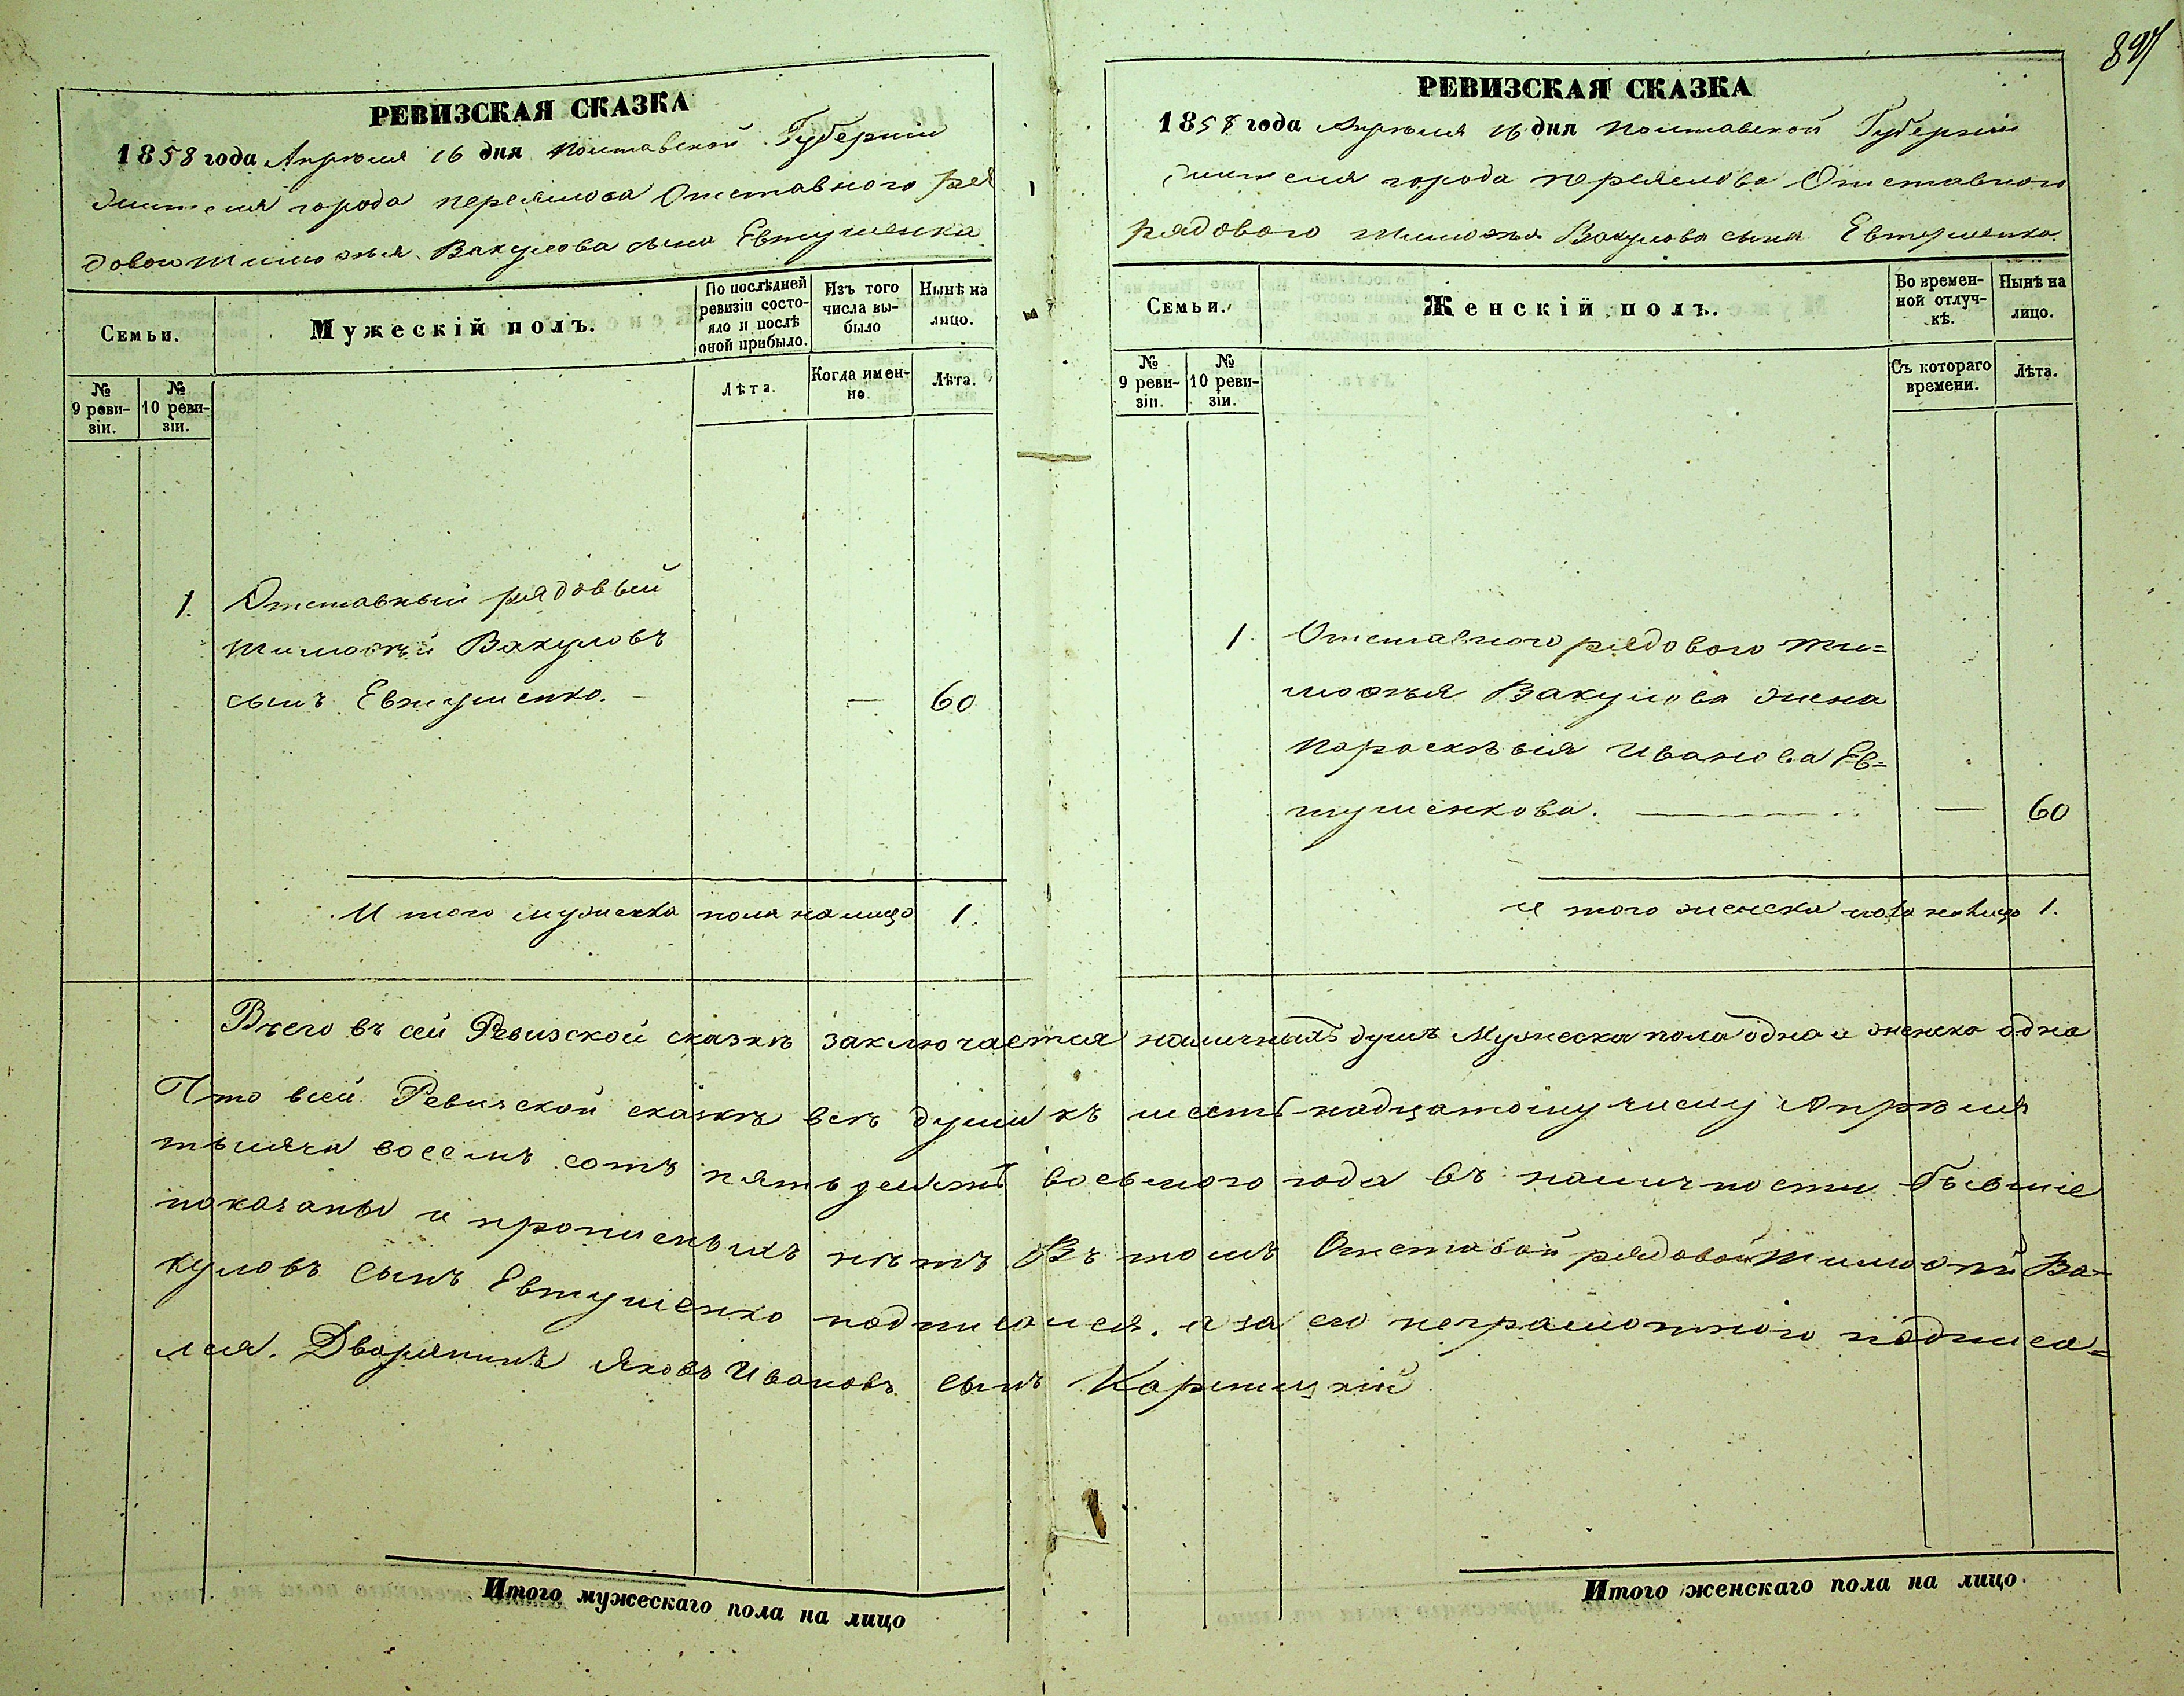 897
РЕВИЗСКАЯ СКАЗКА
1858 года Апрѣля 16 дня Полтавской Губерніи
Жителя города Переяслова Отставного ря
дового Тимофѣя Вакулова сына Евтушенка
Семьи.
Мужескій полъ.
По послѣдней ревизіи состояло и послѣ оной прибыло.
Изъ того числа выбыло
Нынѣ на лицо.
№ 9 ревизіи.
№ 10 ревизіи.
Лѣта.
Когда именно.
Лѣта.
1. Отставный рядовый
Тимофѣй Вакуловъ
сынъ Евтушенко. — — 60
Итого мужеска пола налицо 1.
РЕВИЗСКАЯ СКАЗКА
1858 года Апрѣля 16 дня Полтавской Губерніи
Жителя города Переяслова Отставного
рядового Тимофѣя Вакулова сына Евтушенка.
Семьи.
Женскій полъ.
Во временной отлучкѣ.
Нынѣ на лицо.
№ 9 ревизіи.
№ 10 ревизіи.
Съ котораго времени.
Лѣта.
1 Отставного рядового Ти=
мофѣя Вакулова жена
Параскѣвія Иванова Ев=
тушенкова. — — 60
Итого женска пола налицо 1.
Всего въ сей Ревизской сказкѣ заключается наличныхъ душъ Мужеска пола одна и женска одна
Что всей Ревизской сказкѣ всѣ души къ шестьнадцатому числу Апрѣля
тысяча восемъ сотъ пятьдесятъ восьмого года въ наличности бывшіе
показаны и прописныхъ нѣтъ Въ томъ Отставой рядовой Тимофій Ва=
куловъ сынъ Евтушенко подписался. а за его неграмотного подписа=
лся. Дворянинъ Яковъ Ивановъ сынъ
Итого мужескаго пола на лицо
Итого женскаго пола на лицо.